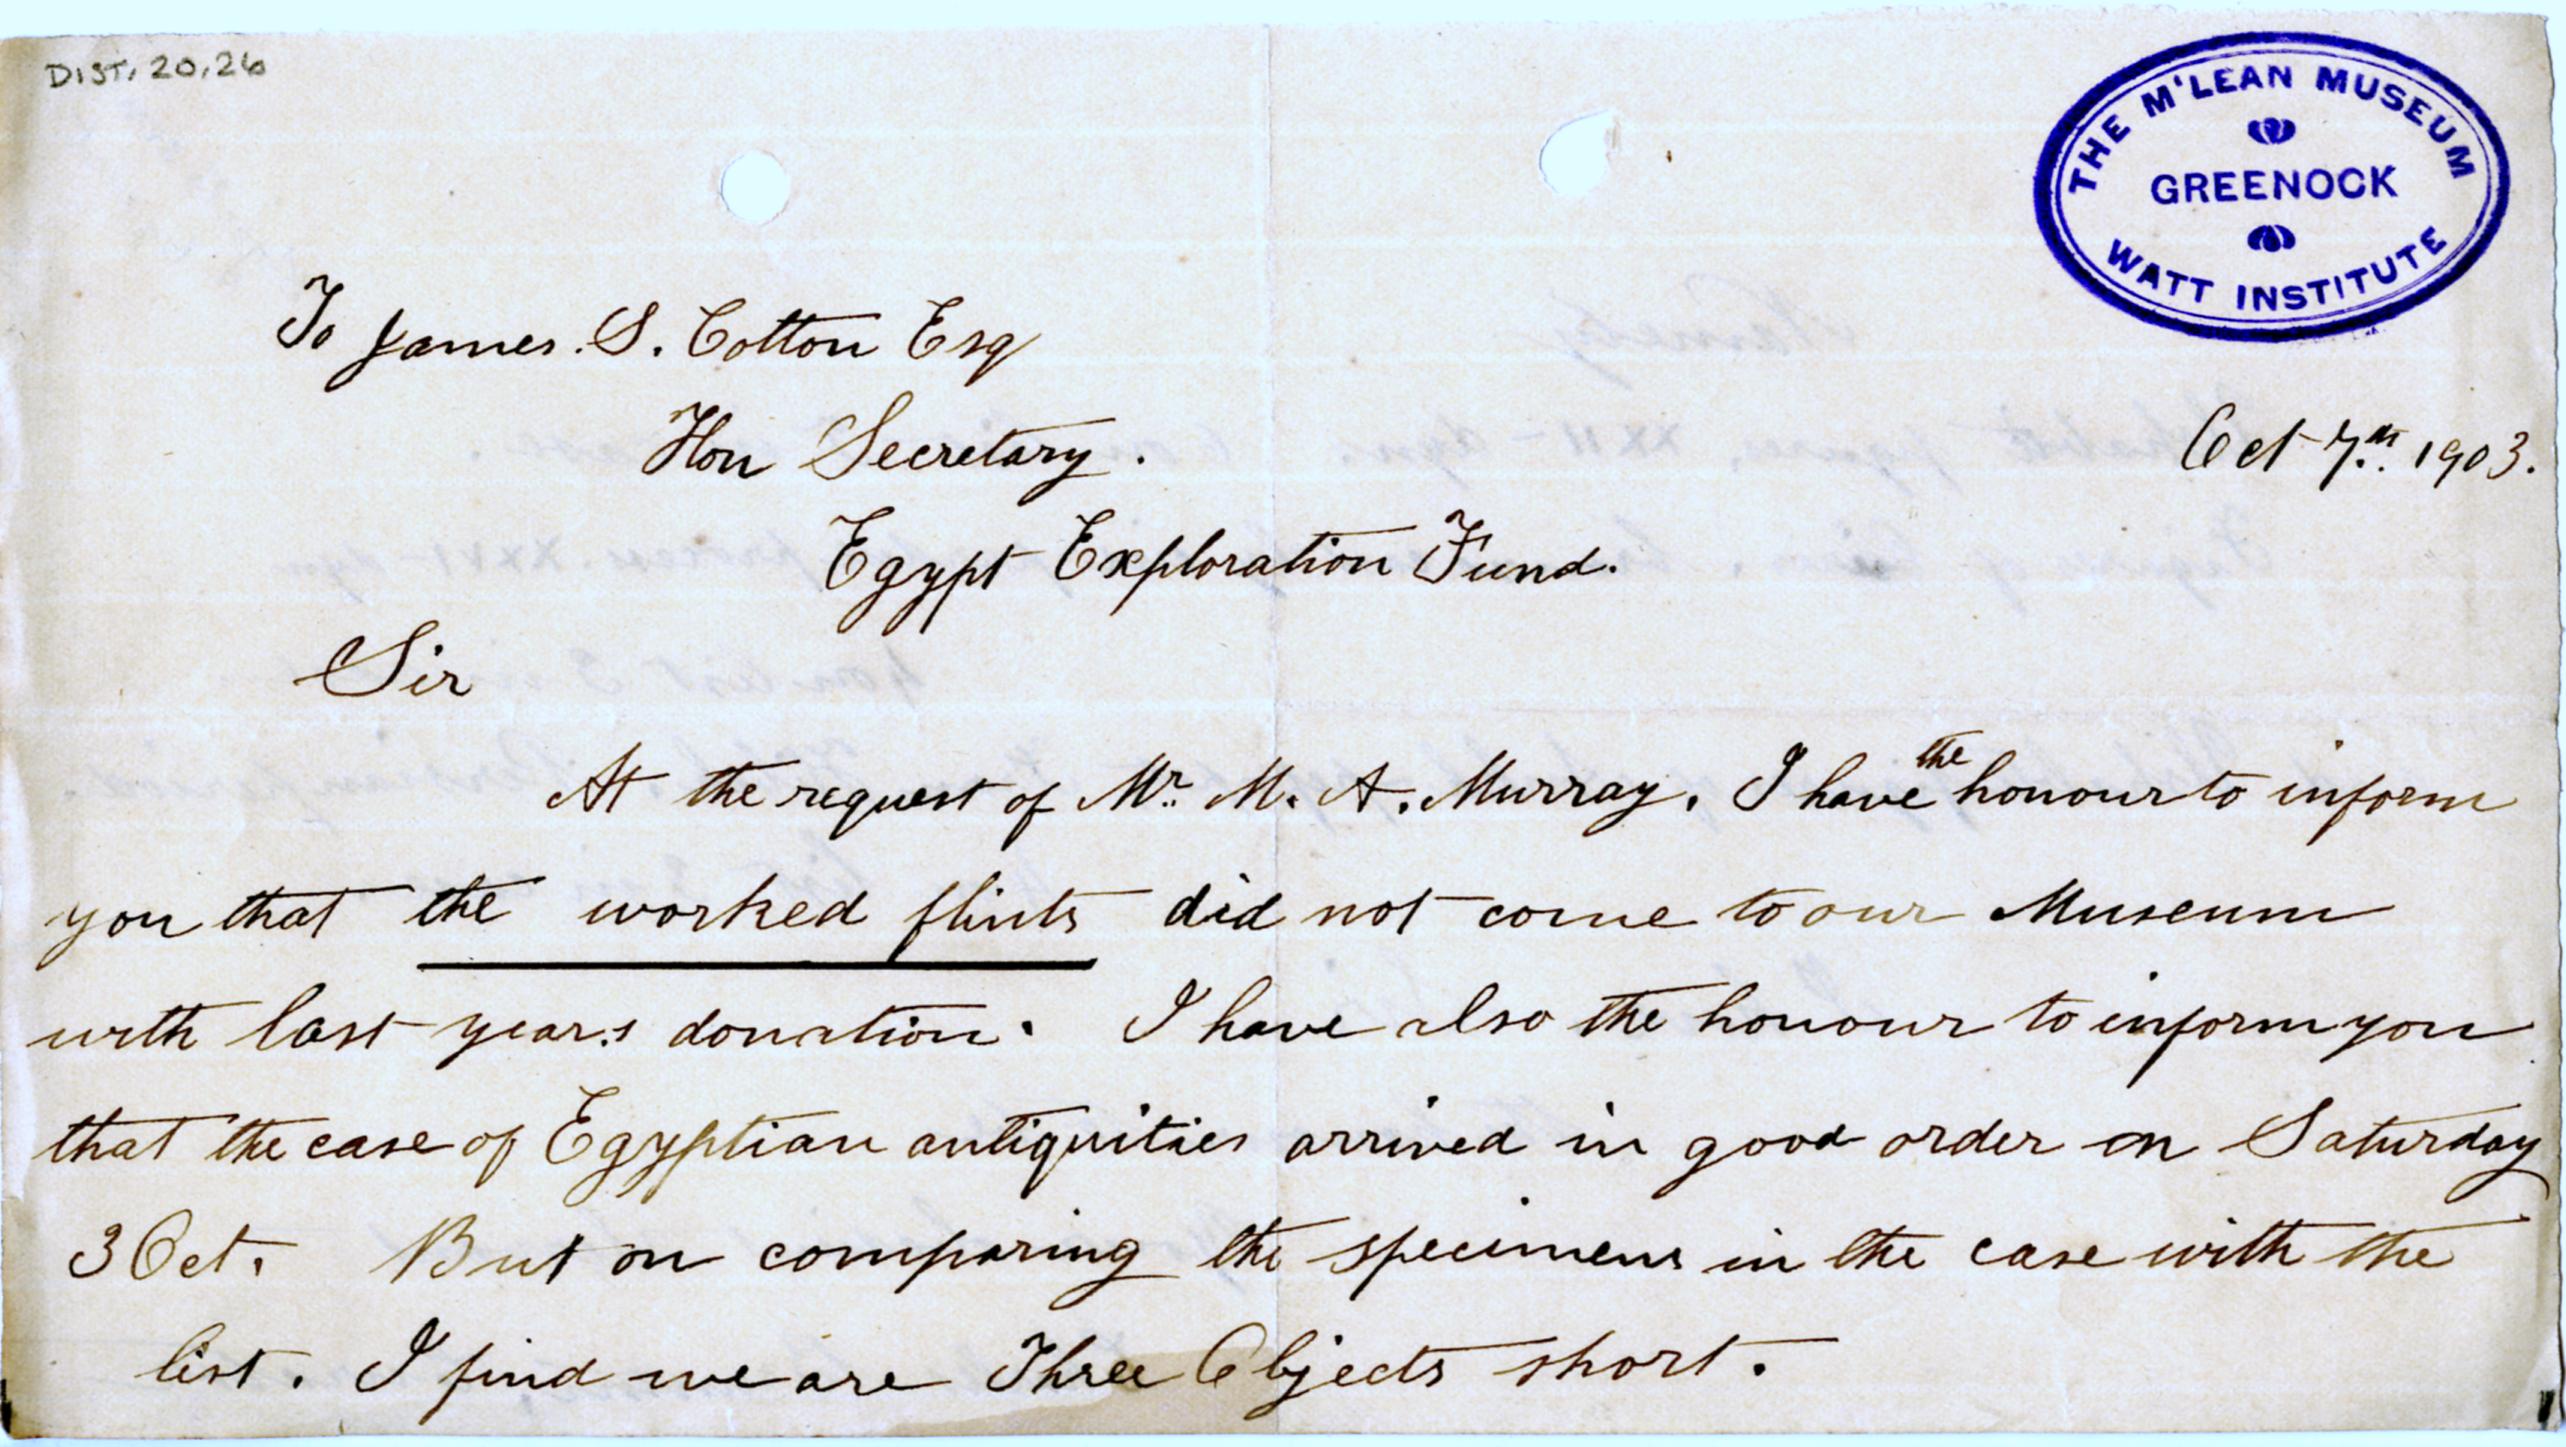 DIST. 20.26
THE M'LEAN MUSEUM
GREENOCK
WATT INSTITUTE
To James. S. Cotton Esq
Hon Secretary.
Oct 7th. 1903.
Egypt Exploration Fund.
Sir
At the request of Mr. M. A. Murray. I have the honour to inform
you that the worked flints did not come to our Museum
with last years donation. I have also the honour to inform you
that the case of Egyptian antiquities arrived in good order on Saturday
3 Oct. But on comparing the specimens in the case with the
list. I find we are Three Objects short.